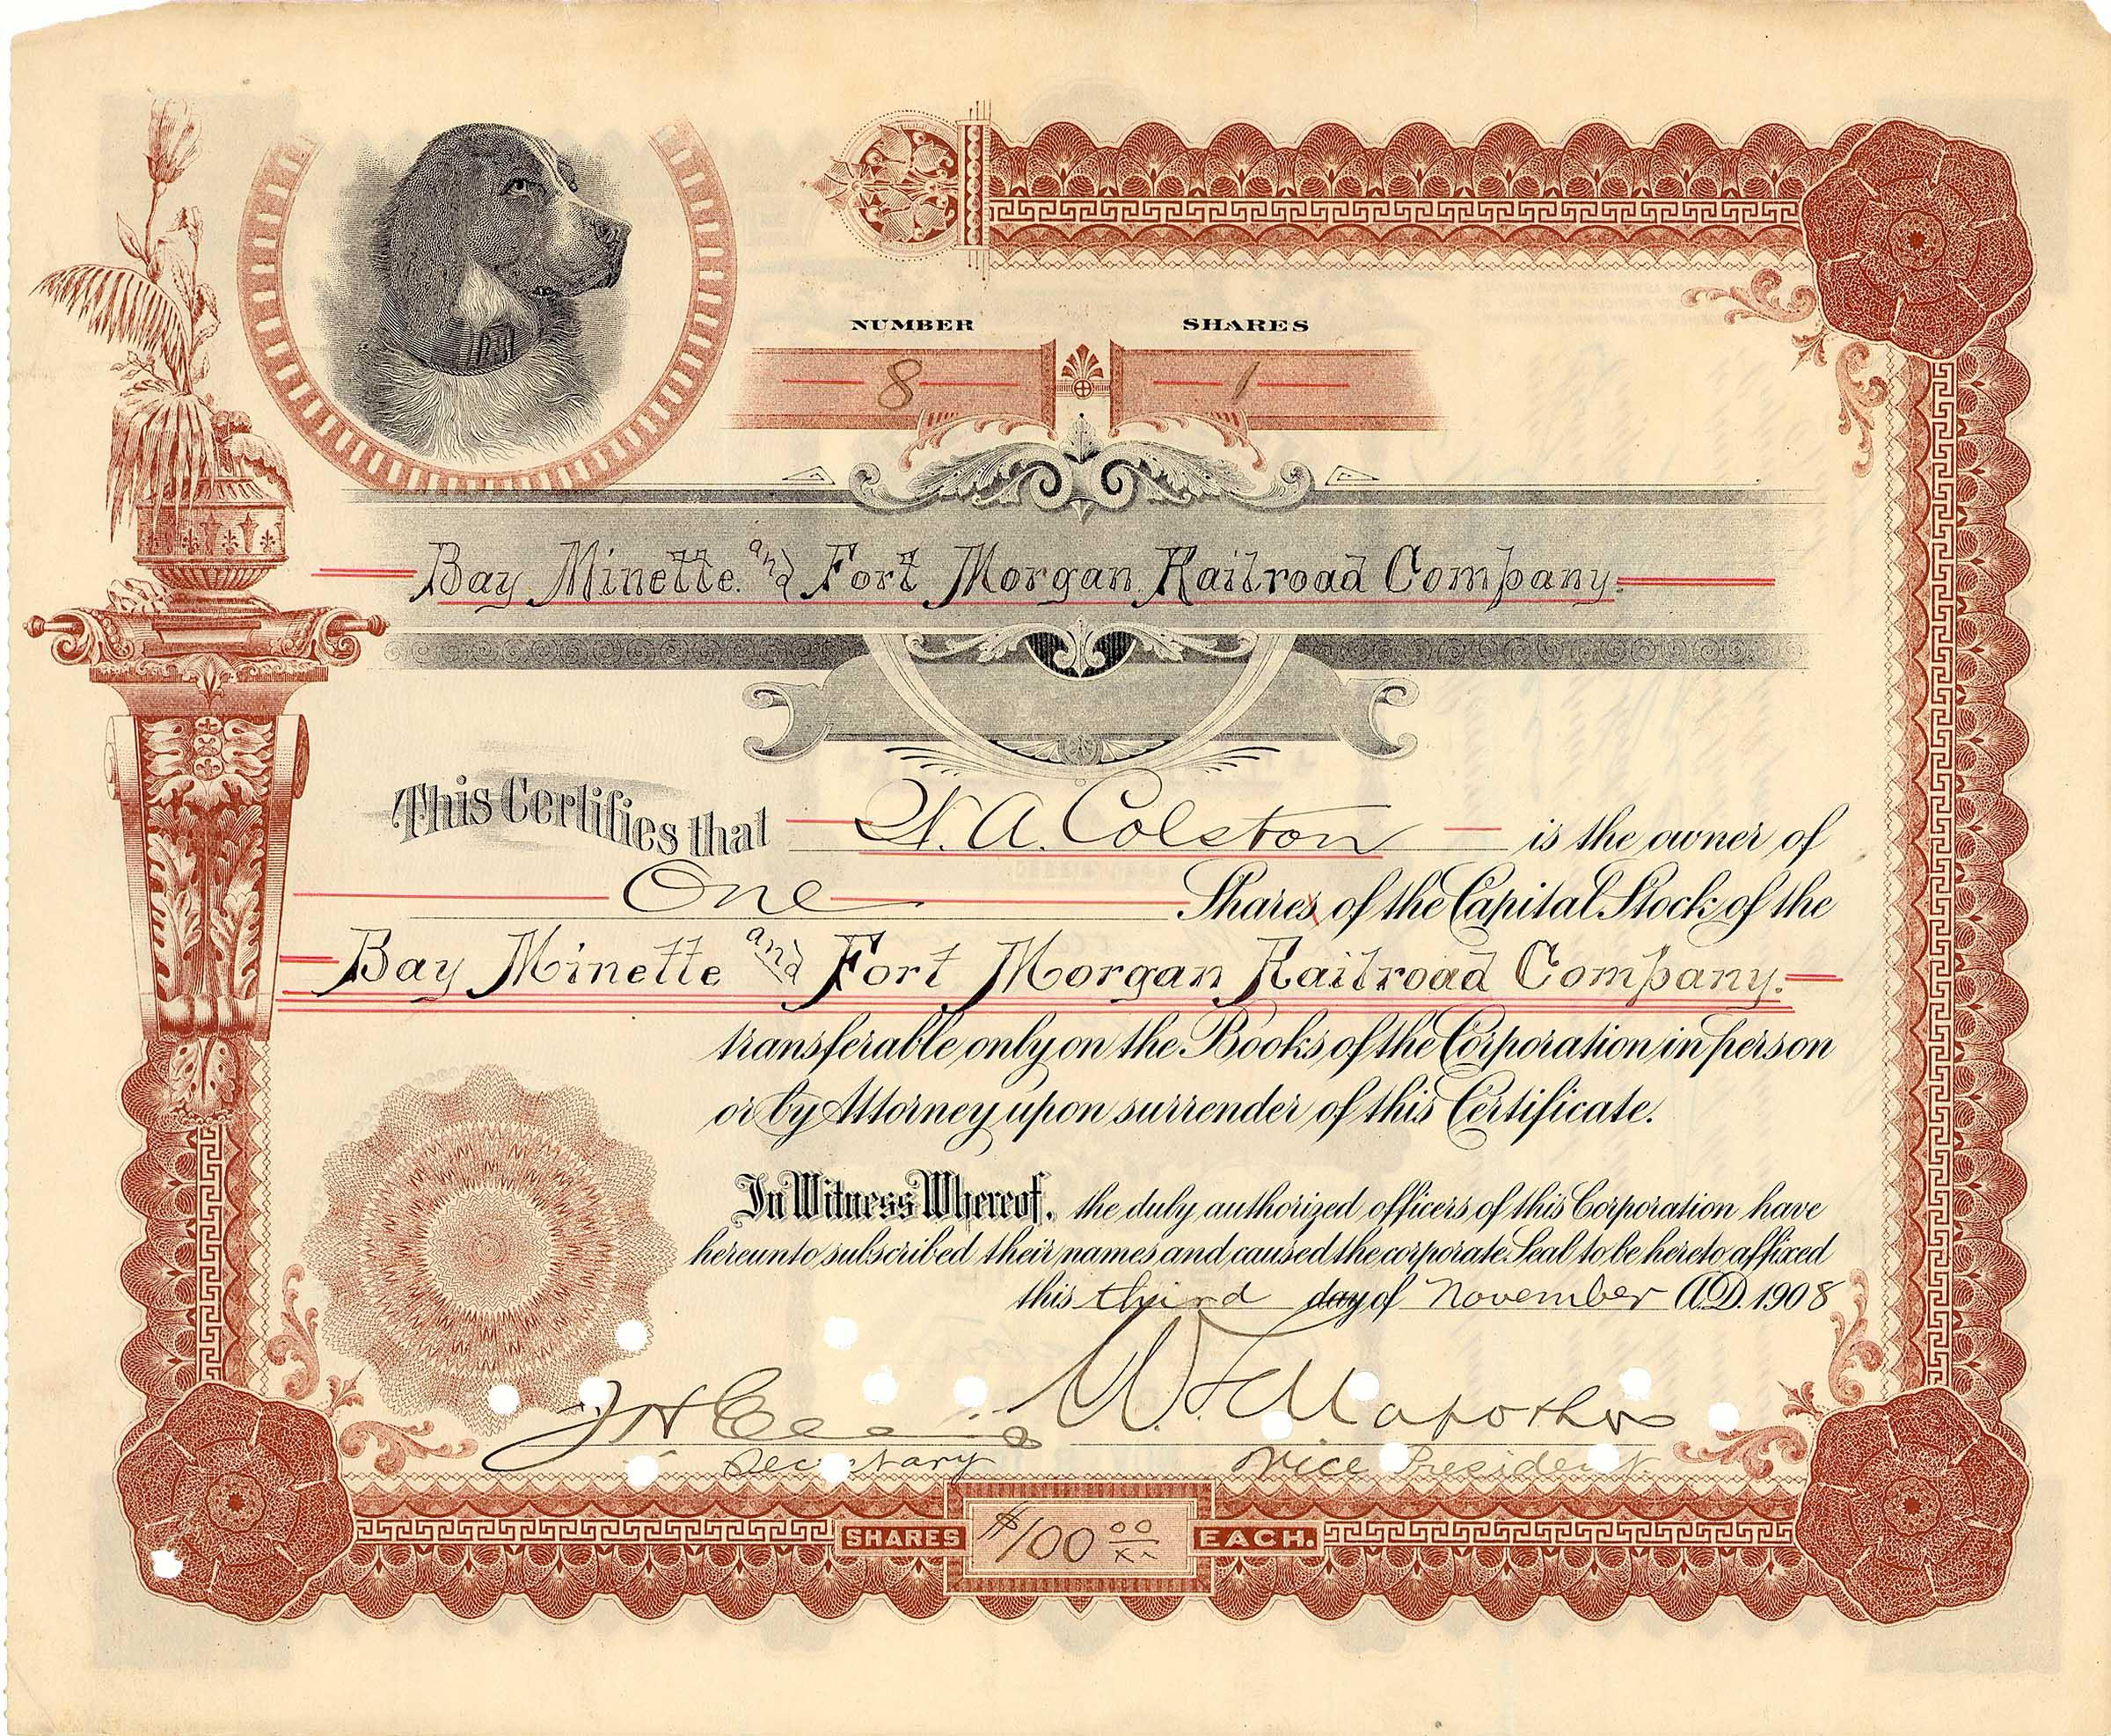 NUMBER SHARES
8 1
Bay Minette and Fort Morgan Railroad Company.
This Certifies that W. A. Colston is the owner of
One Shares of the Capital Stock of the
Bay Minette and Fort Morgan Railroad Company.
transferable only on the Books of the Corporation in person
or by Attorney upon surrender of this Certificate.
In Witness Whereof, the duly authorized officers of this Corporation have
hereunto subscribed their names and caused the corporate Seal to be hereto affixed
this third day of November A.D. 1908
J H W. L. Mapother
Secretary Vice President.
SHARES $100 00/xx EACH.